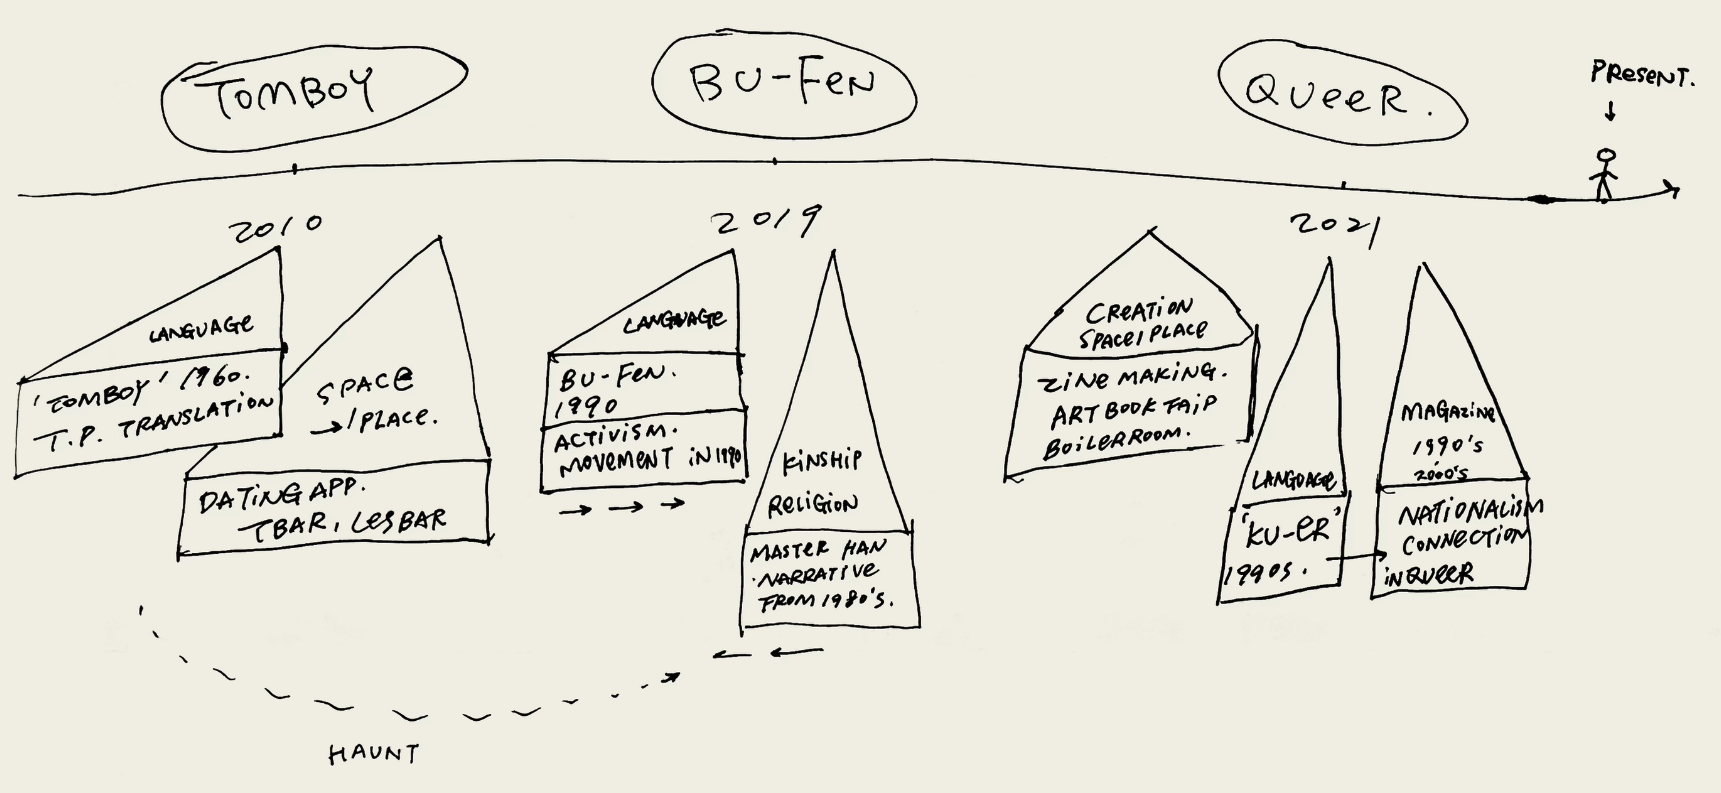 TOMBOY
BU-FEN
QUEER.
PRESENT.
2010
2019
2021
LANGUAGE
'TOMBOY' 1960.
T.P. TRANSLATION
SPACE
→/PLACE.
DATING APP.
TBAR, LESBAR
LANGUAGE
BU-FEN.
1990
ACTIVISM.
MOVEMENT IN 1990
→ → →
KINSHIP
RELIGION
MASTER HAN
NARRATIVE
FROM 1980'S.
← ←
CREATION
SPACE/PLACE
ZINE MAKING.
ART BOOK FAIP
BOILERROOM.
LANGUAGE
'KU-ER'
1990S.
MAGAZINE
1990'S
2000'S
NATIONALISM
CONNECTION
IN QUEER
HAUNT